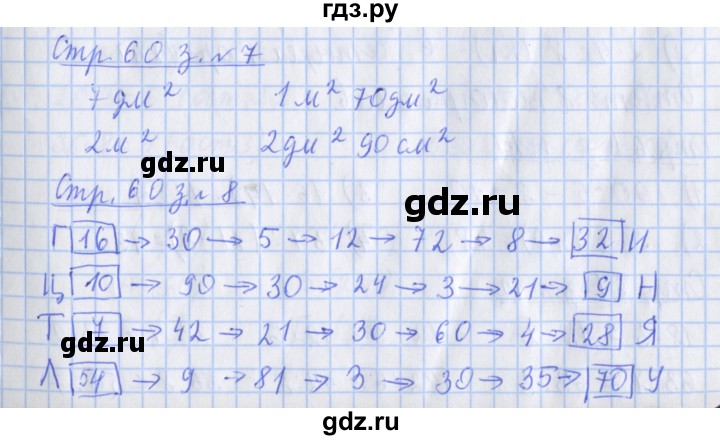 гдз.ру
Стр. 60 з. № 7
7 дм² 1 м² 70 дм²
2 м² 2 дм² 90 см²
gdz.ru
gdz.ru
Стр. 60 з. № 8
gdz.ru
Г 16 → 30 → 5 → 12 → 72 → 8 → 32 И
Ц 10 → 90 → 30 → 24 → 3 → 21 → 9 Н
Т 7 → 42 → 21 → 30 → 60 → 4 → 28 Я
gdz.ru
gdz.ru
Л 54 → 9 → 81 → 3 → 30 → 35 → 70 У
gdz.ru